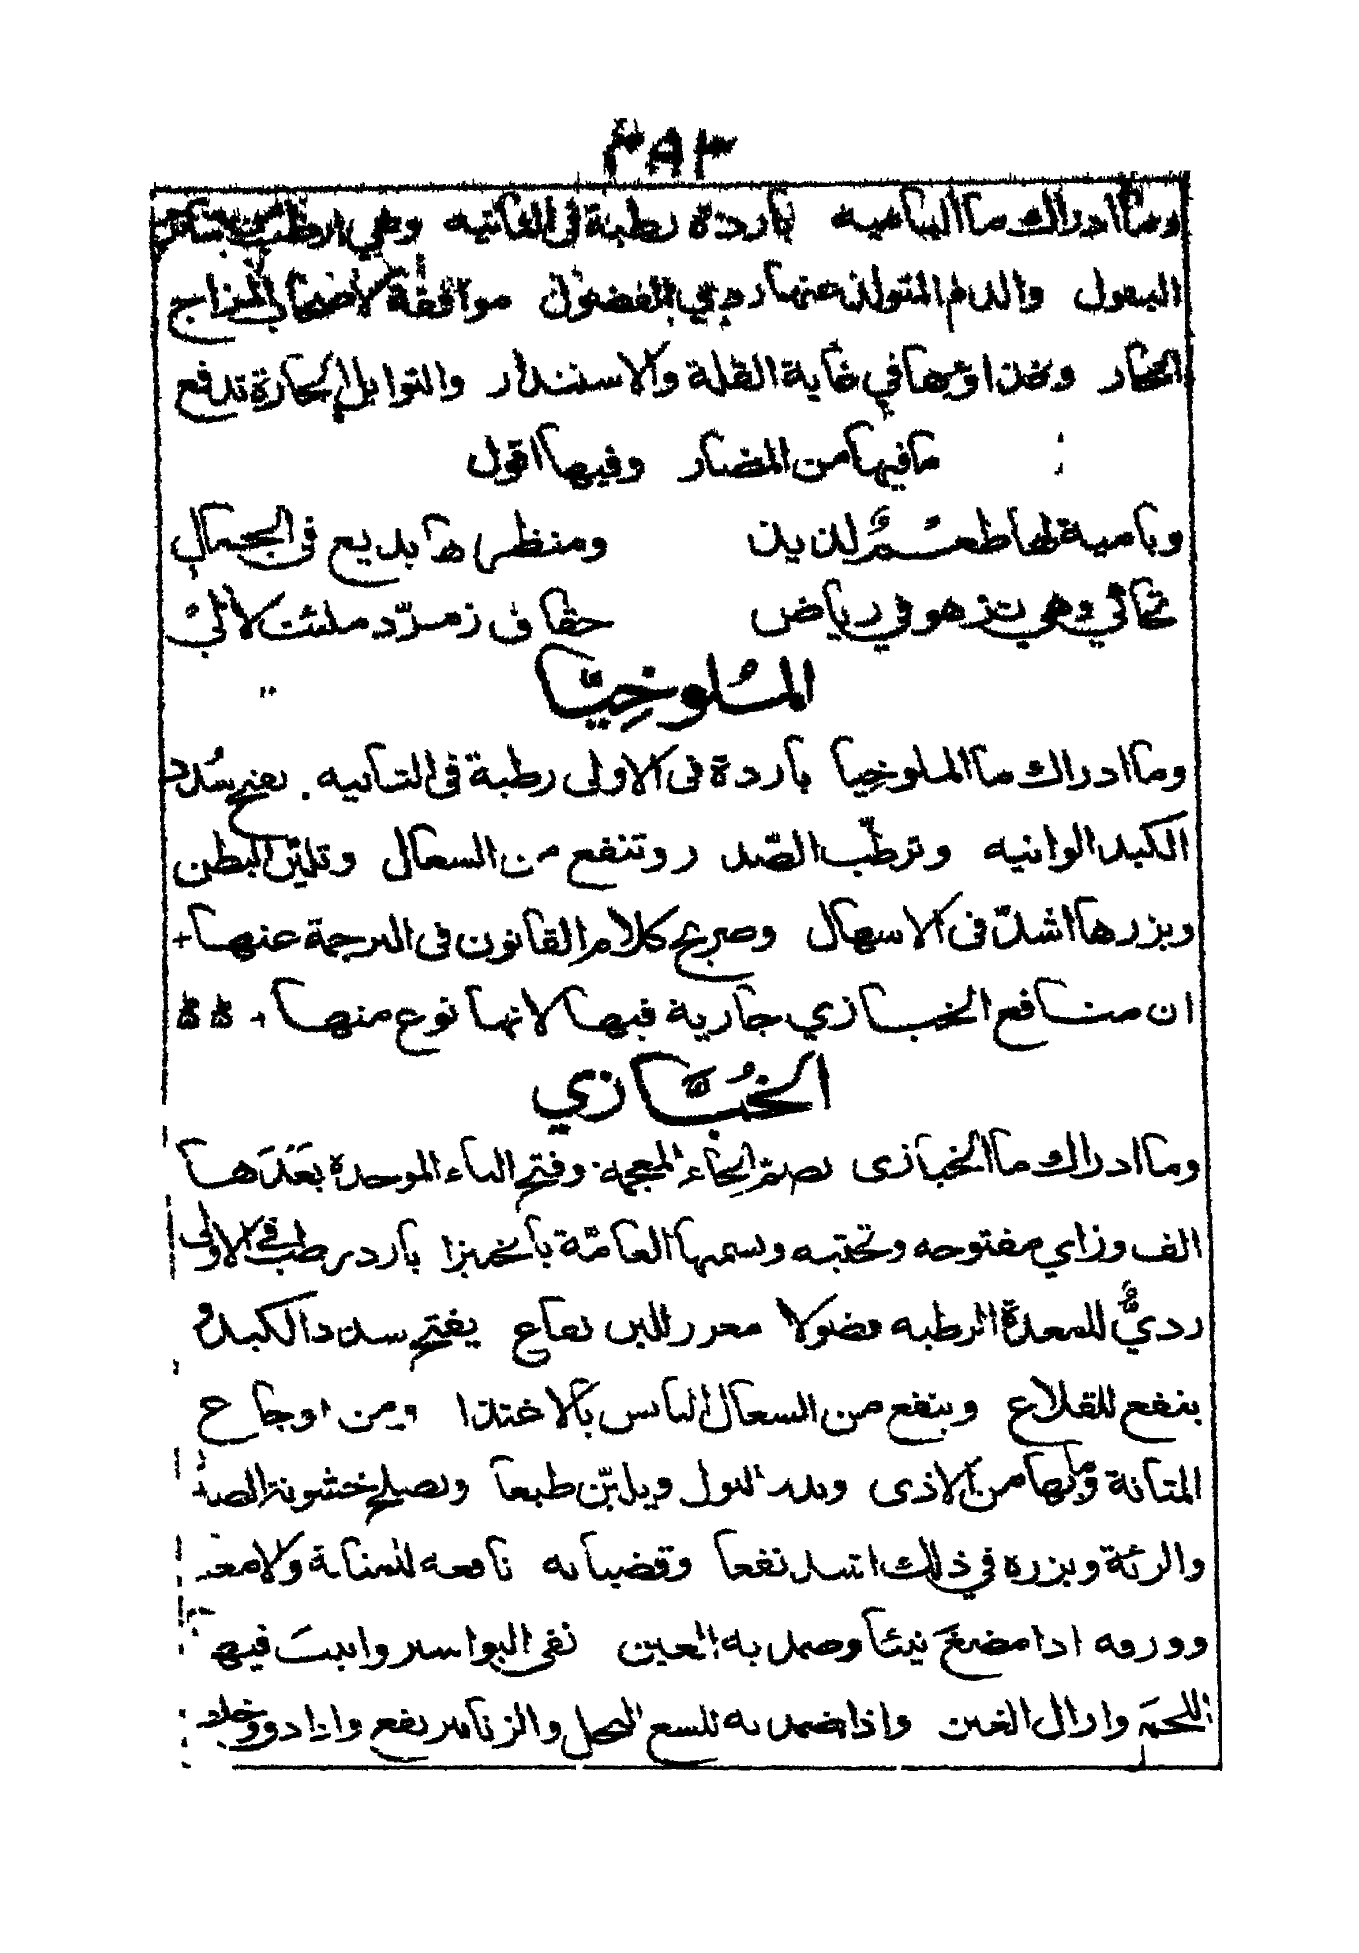 ٣٨٣
وما ادراك ما الباميه باردة رطبة في الثانيه وهي ارطب من سائر
البقول والدم المتولد عنها ردي الفضول موافقة لاصحاب المزاج
الحار وغذاؤها في غاية القلة والاستندار والتوابل الحارة تدفع
ما فيها من المضار وفيها اقول
وبامية لها طعم لذيذ ومنظرها بديع في الجمال
تحاكي وهي تزهو في رياض حقاق زمرّد ملئت لآلئ
الملُوخِيّا
وما ادراك ما الملوخِيا باردة في الاولى رطبة في الثانيه . تفتح سُدد
الكبد الوانيه وترطّب الصّدر وتنفع من السعال وتليّن البطن
وبزرها اشدّ في الاسهال وصريح كلام القانون في الترجمة عنها
ان منافع الخبازي جارية فيها لانها نوع منها
الخُبَّازي
وما ادراك ما الخبازى بضم الخاء المعجمه وفتح الباء الموحدة بَعْدَها
الف وزاي مفتوحه وتحتيه وتسميها العامّة بالخبيزا بارد رطب في الاولى
ردىٌّ للمعدة الرطبه فضولا مغزر للبن نعاع يفتح سدد الكبد و
ينفع للقلاع وينفع من السعال اليابس بالاختذا ومن اوجاع
المثانة وما لها من الاذى ويدر البول ويليّن طبعا ويصلح خشونة الصد
والرئة وبزره في ذلك اشد نفعا وقضبانه نافعه للمثانة والامعـ
وورقه اذا مضغَ نيئا وضمد به العين نقى البواسير وانبتَ فيها
اللحمَ وازال الغين واذا ضمد به للسع النحل والزنابير نفع واذا دوو